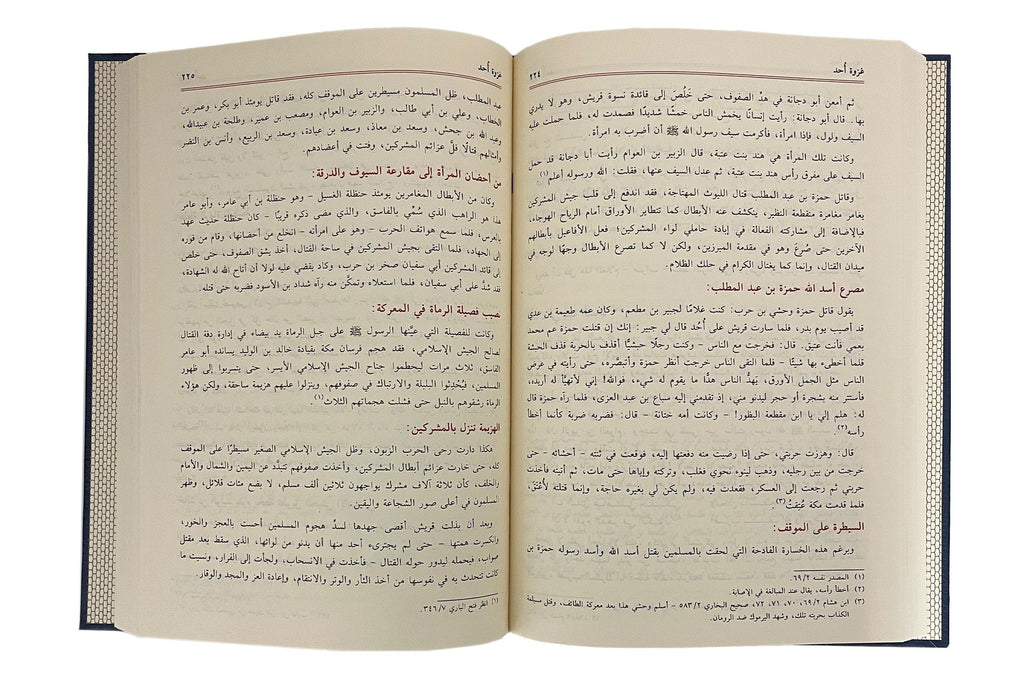 غزوة أُحد
٢٢٤
ثم أمعن أبو دجانة في هدِّ الصفوف، حتى خَلُصَ إلى قائدة نسوة قريش، وهو لا يدري
بها. قال أبو دجانة: رأيت إنسانًا يخمش الناس خمشًا شديدًا فصمدت له، فلما حملت عليه
السيف ولول، فإذا امرأة، فأكرمت سيف رسول الله ﷺ أن أضرب به امرأة.
وكانت تلك المرأة هي هند بنت عتبة، قال الزبير بن العوام رأيت أبا دجانة قد حمل
السيف على مفرق رأس هند بنت عتبة، ثم عدل السيف عنها، فقلت: الله ورسوله أعلم(١)
وقاتل حمزة بن عبد المطلب قتال الليوث المهتاجة، فقد اندفع إلى قلب جيش المشركين
يغامر مغامرة منقطعة النظير، ينكشف عنه الأبطال كما تتطاير الأوراق أمام الرياح الهوجاء،
فبالإضافة إلى مشاركته الفعالة في إبادة حاملي لواء المشركين؛ فعل الأفاعيل بأبطالهم
الآخرين حتى صُرِعَ وهو في مقدمة المبرزين، ولكن لا كما تصرع الأبطال وجهًا لوجه في
ميدان القتال، وإنما كما يغتال الكرام في حلك الظلام.
مصرع أسد الله حمزة بن عبد المطلب:
يقول قاتل حمزة وحشي بن حرب: كنت غلامًا لجبير بن مطعم، وكان عمه طعيمة بن عدي
قد أصيب يوم بدر، فلما سارت قريش على أُحُد قال لي جبير: إنك إن قتلت حمزة عم محمد
بعمي فأنت عتيق. قال: فخرجت مع الناس – وكنت رجلًا حبشيًّا أقذف بالحربة قذف الحبشة
قلما أخطىء بها شيئًا – فلما التقى الناس خرجت أنظر حمزة وأتبصَّره، حتى رأيته في عرض
الناس مثل الجمل الأورق، يَهدُّ الناس هدًّا ما يقوم له شيء، فوالله! إني لأتهيَّأ له أريده،
فأستتر منه بشجرة أو حجر ليدنو مني، إذ تقدمني إليه سباع بن عبد العزى، فلما رآه حمزة قال
له: هلم إلي يا ابن مقطعة البظور! – وكانت أمه ختانة – قال: فضربه ضربة كأنما أخطأ
رأسه(٢).
قال: وهززت حربتي، حتى إذا رضيت منه دفعتها إليه، فوقعت في ثنته – أحشائه – حتى
خرجت من بين رجليه، وذهب لينوء نحوي فغلب، وتركته وإياها حتى مات، ثم أتيته فأخذت
حربتي ثم رجعت إلى العسكر، فقعدت فيه، ولم يكن لي بغيره حاجة، وإنما قتلته لأُعْتَقَ،
فلما قدمت مكة عُتِقتُ(٣).
السيطرة على الموقف:
وبرغم هذه الخسارة الفادحة التي لحقت بالمسلمين بقتل أسد الله وأسد رسوله حمزة بن
(١) المصدر نفسه ٦٩/٢.
(٢) أخطأ رأسه، يقال عند المبالغة في الإصابة.
(٣) ابن هشام ٦٩/٢، ٧٠، ٧١، ٧٢، صحيح البخاري ٥٨٣/٢ – أسلم وحشي هذا بعد معركة الطائف، وقتل مسيلمة
الكذاب بحربته تلك، وشهد اليرموك ضد الرومان.
غزوة أُحد
٢٢٥
عبد المطلب، ظل المسلمون مسيطرين على الموقف كله، فقد قاتل يومئذ أبو بكر، وعمر بن
الخطاب، وعلي بن أبي طالب، والزبير بن العوام، ومصعب بن عمير، وطلحة بن عبيدالله،
وعبد الله بن جحش، وسعد بن معاذ، وسعد بن عبادة، وسعد بن الربيع، وأنس بن النضر
وأمثالهم قتالًا فلَّ عزائم المشركين، وفتت في أعضادهم.
من أحضان المرأة إلى مقارعة السيوف والدرقة:
وكان من الأبطال المغامرين يومئذ حنظلة الغسيل – وهو حنظلة بن أبي عامر، وأبو عامر
هذا هو الراهب الذي سُمِّي بالفاسق، والذي مضى ذكره قريبًا – كان حنظلة حديث عهد
بالعرس، فلما سمع هواتف الحرب – وهو على امرأته – انخلع من أحضانها، وقام من فوره
إلى الجهاد، فلما التقى بجيش المشركين في ساحة القتال، أخذ يشق الصفوف، حتى خلص
إلى قائد المشركين أبي سفيان صخر بن حرب، وكاد يقضي عليه لولا أن أتاح الله له الشهادة،
فقد شدَّ على أبي سفيان، فلما استعلاه وتمكَّن منه رآه شداد بن الأسود فضربه حتى قتله.
نصيب فصيلة الرماة في المعركة:
وكانت للفصيلة التي عيَّنها الرسول ﷺ على جبل الرماة يد بيضاء في إدارة دفة القتال
لصالح الجيش الإسلامي، فقد هجم فرسان مكة بقيادة خالد بن الوليد يسانده أبو عامر
الفاسق، ثلاث مرات ليحطموا جناح الجيش الإسلامي الأيسر، حتى يتسربوا إلى ظهور
المسلمين، فيُحْدِثوا البلبلة والارتباك في صفوفهم، وينزلوا عليهم هزيمة ساحقة، ولكن هؤلاء
الرماة رشقوهم بالنبل حتى فشلت هجماتهم الثلاث(١).
الهزيمة تنزل بالمشركين:
هكذا دارت رحى الحرب الزبون، وظل الجيش الإسلامي الصغير مسيطرًا على الموقف
كله، حتى خارت عزائم أبطال المشركين، وأخذت صفوفهم تتبدَّد عن اليمين والشمال والأمام
والخلف، كأن ثلاثة آلاف مشرك يواجهون ثلاثين ألف مسلم، لا بضع مئات قلائل، وظهر
المسلمون في أعلى صور الشجاعة واليقين.
وبعد أن بذلت قريش أقصى جهدها لسدِّ هجوم المسلمين أحست بالعجز والخور،
وانكسرت همتها – حتى لم يجترىء أحد منها أن يدنو من لوائها، الذي سقط بعد مقتل
صواب، فيحمله ليدور حوله القتال – فأخذت في الانسحاب، ولجأت إلى الفرار، ونسيت ما
كانت تتحدث به في نفوسها من أخذ الثأر والوتر والانتقام، وإعادة العز والمجد والوقار.
(١) انظر فتح الباري ٣٤٦/٧.